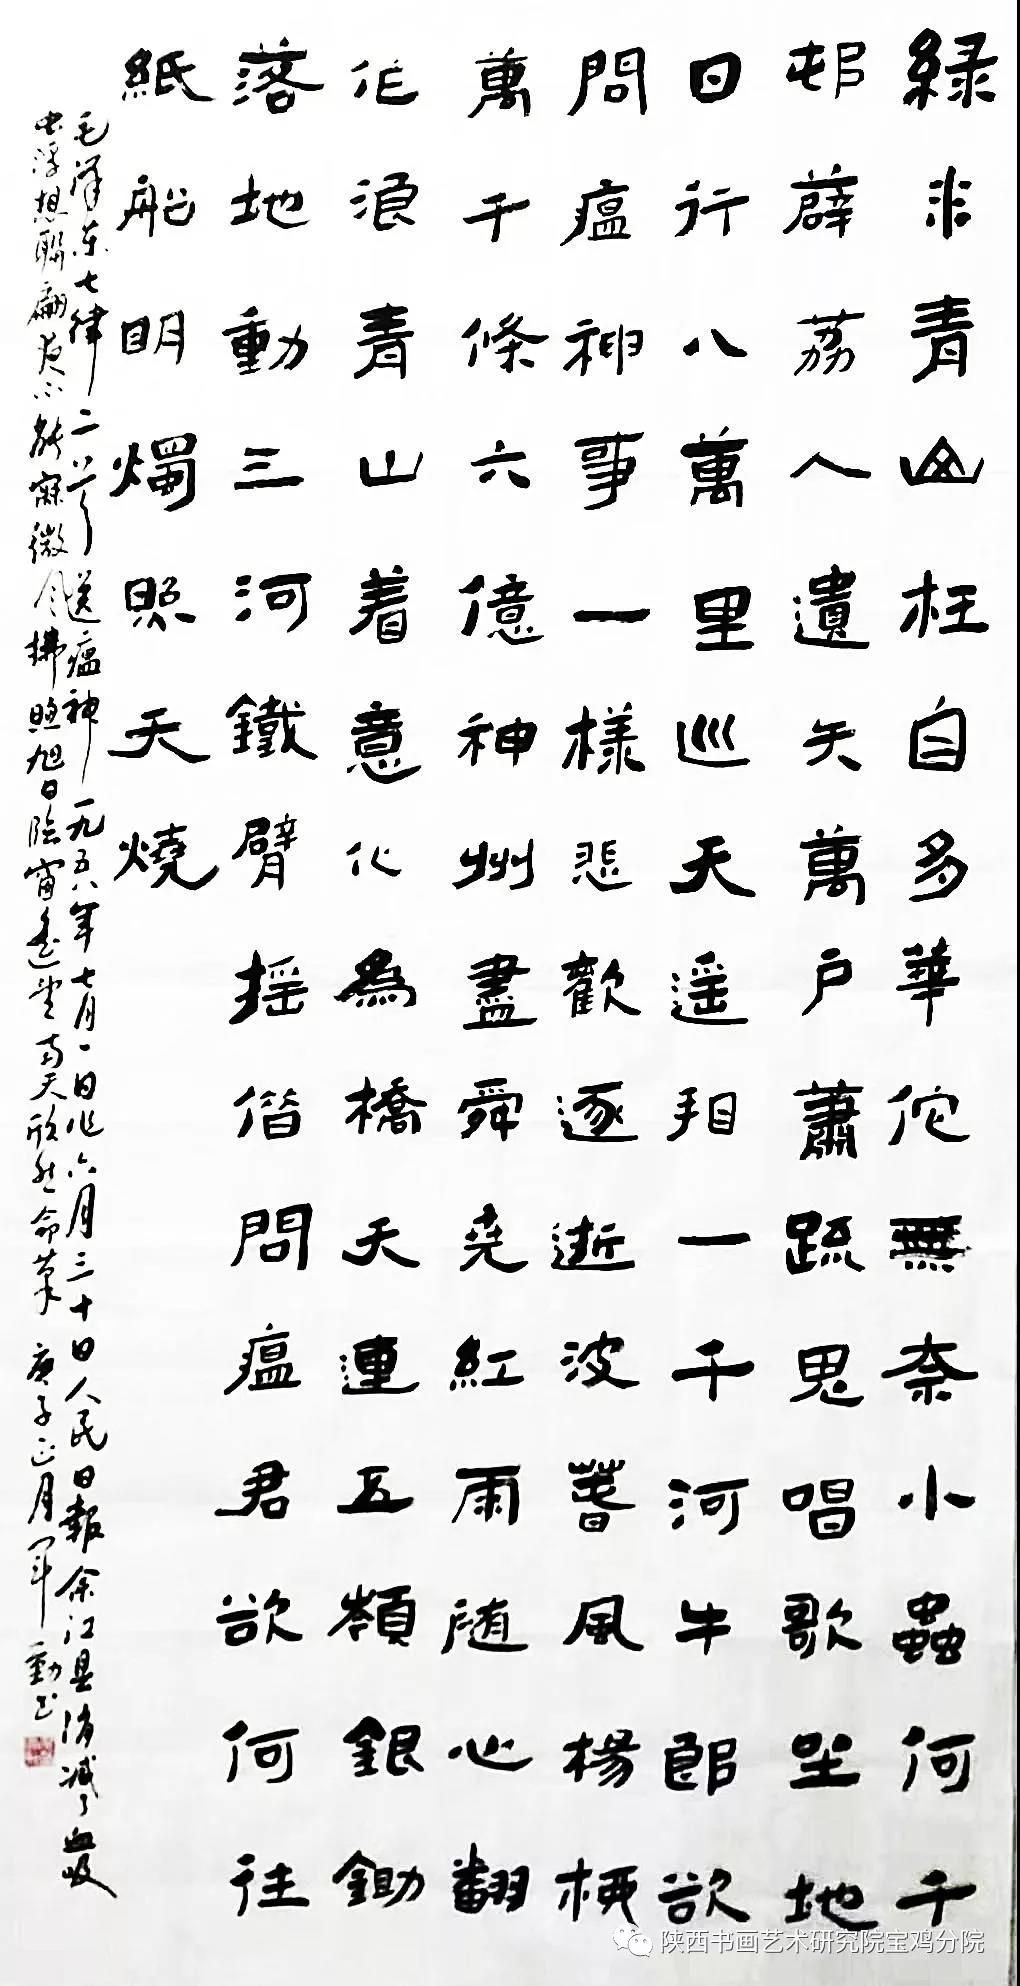 緑水青山枉自多華佗無奈小蟲何千
邨薜荔人遺矢萬户蕭疏鬼唱歌坐地
日行八萬里巡天遥相一千河牛郎欲
問瘟神事一樣悲歡逐逝波春風楊柳
萬千條六億神州盡舜尭紅雨随心翻
作浪青山着意化為橋天連五嶺銀鋤
落地動三河鐵臂摇借問瘟君欲何往
紙船明燭照天燒
毛泽东七律二首送瘟神一九五八年七月一日作六月三十日人民日報余江县消滅了血吸
虫浮想聯翩夜不能寐微风拂煦旭日臨窗遥望南天欣然命筆庚子正月军勤书
陕西书画艺术研究院宝鸡分院